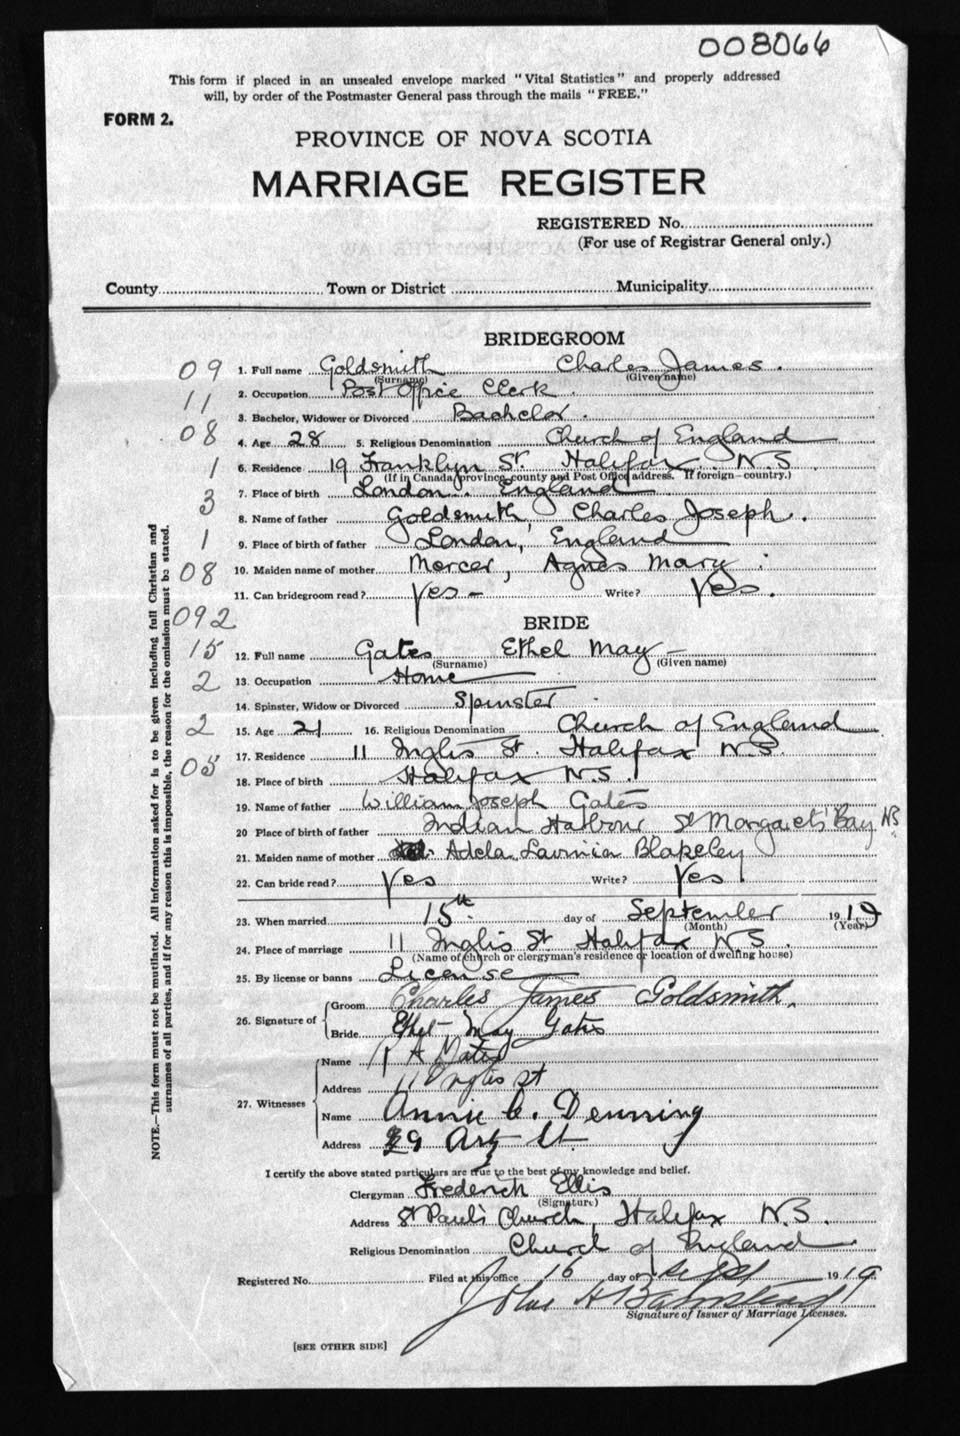 008066
This form if placed in an unsealed envelope marked "Vital Statistics" and properly addressed
will, by order of the Postmaster General pass through the mails "FREE."
FORM 2.
PROVINCE OF NOVA SCOTIA
MARRIAGE REGISTER
REGISTERED No.
(For use of Registrar General only.)
County Town or District Municipality
BRIDEGROOM
09
1. Full name Goldsmith Charles James.
(Surname) (Given name)
11
2. Occupation Post Office Clerk.
3. Bachelor, Widower or Divorced Bachelor.
08
4. Age 28 5. Religious Denomination Church of England
1
6. Residence 19 Franklyn St. Halifax. N.S
(If in Canada, province, county and Post Office address. If foreign—country.)
3
7. Place of birth London. England
8. Name of father Goldsmith, Charles Joseph.
1
9. Place of birth of father London, England
08
10. Maiden name of mother Mercer, Agnes Mary.
11. Can bridegroom read? Yes - Write? Yes.
092
BRIDE
15
12. Full name Gates Ethel May -
(Surname) (Given name)
2
13. Occupation Home
14. Spinster, Widow or Divorced Spinster
2
15. Age 21 16. Religious Denomination Church of England
17. Residence 11 Inglis St. Halifax N.S.
05
18. Place of birth Halifax N.S.
19. Name of father William Joseph Gates
20 Place of birth of father Indian Harbour St Margarets' Bay NS
21. Maiden name of mother Adela Lavinia Blakeley
22. Can bride read? Yes Write? Yes
23. When married 15th day of September 1919
(Month) (Year)
24. Place of marriage 11 Inglis St Halifax N.S.
(Name of church or clergyman's residence or location of dwelling house)
25. By license or banns License
26. Signature of
Groom Charles James Goldsmith.
Bride Ethel May Gates
27. Witnesses
Name A
Address 11 Inglis st
Name Annie C. Denning
Address 29 St.
I certify the above stated particulars are true to the best of my knowledge and belief.
Clergyman Frederick Ellis
(Signature)
Address St Paul's Church, Halifax N.S.
Religious Denomination Church of England
Registered No. Filed at this office 16 day of Sept 1919
John H
Signature of Issuer of Marriage Licenses.
[SEE OTHER SIDE]
NOTE.—This form must not be mutilated. All information asked for is to be given including full Christian and
surnames of all parties, and if for any reason this is impossible, the reason for the omission must be stated.